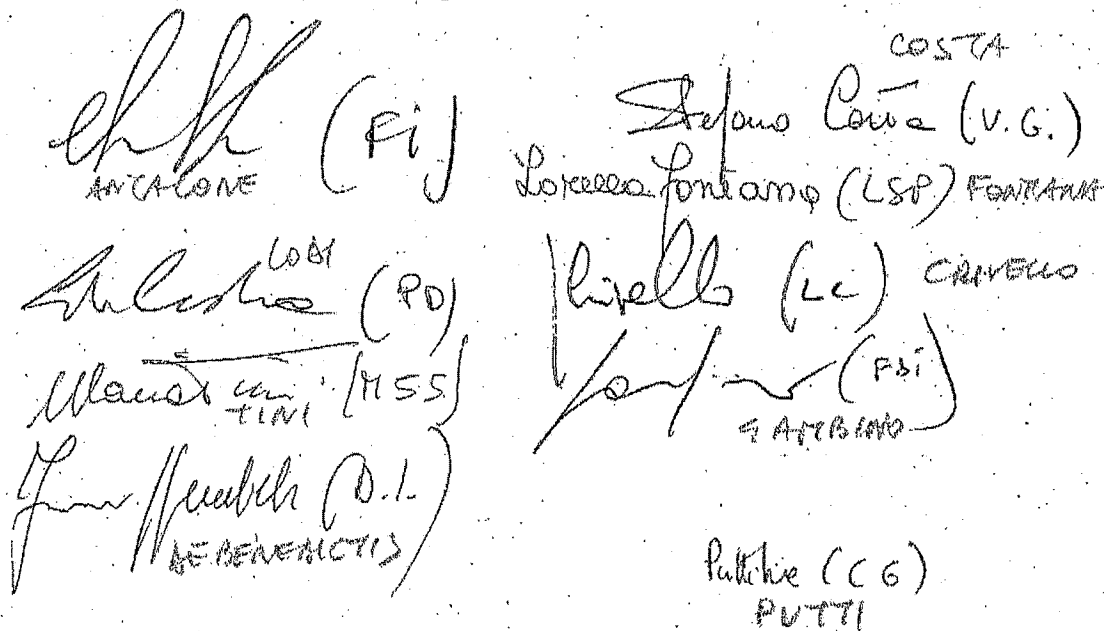 (Fi)
ANCALONE
LODI
(PD)
TINI (M5S)
(D.I.)
DE BENEDICTIS
COSTA
Stefano Costa (V.G.)
Lorella Fontana (LSP) FONTANA
Crivello (LC) CRIVELLO
(FDI)
GAMBINO
Putti (CG)
PUTTI